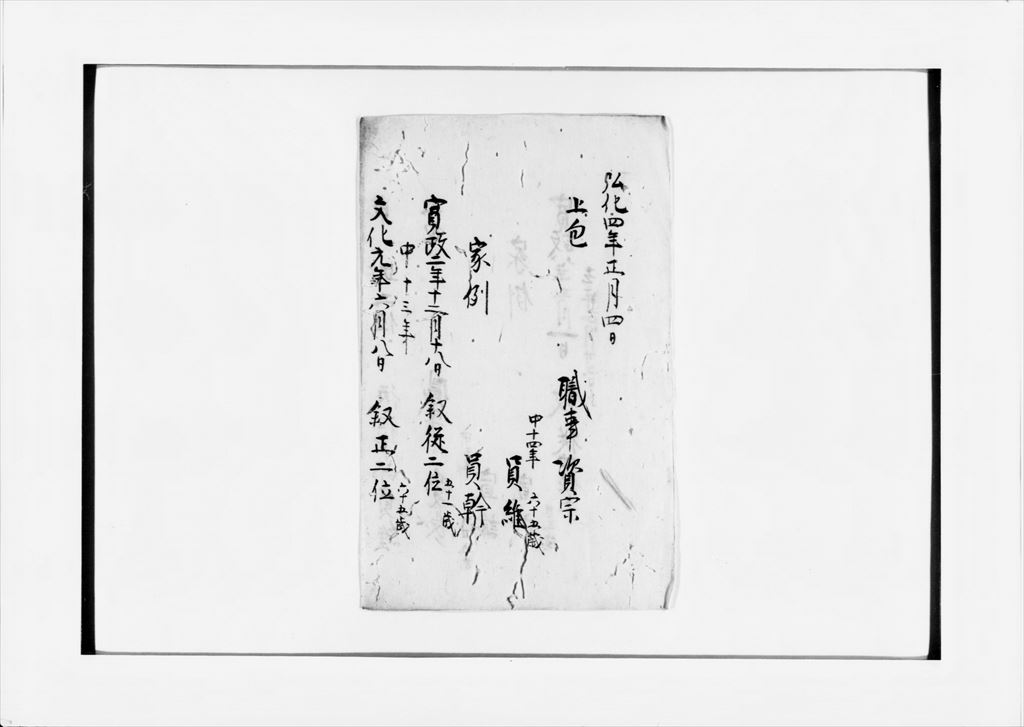 弘化四年正月四日
上包　職事資宗
中十四年　六十五歳
員維
家例　員幹
寛政二年十二月十八日　叙従二位　五十一歳
中十三年
文化元年六月八日　叙正二位　六十五歳